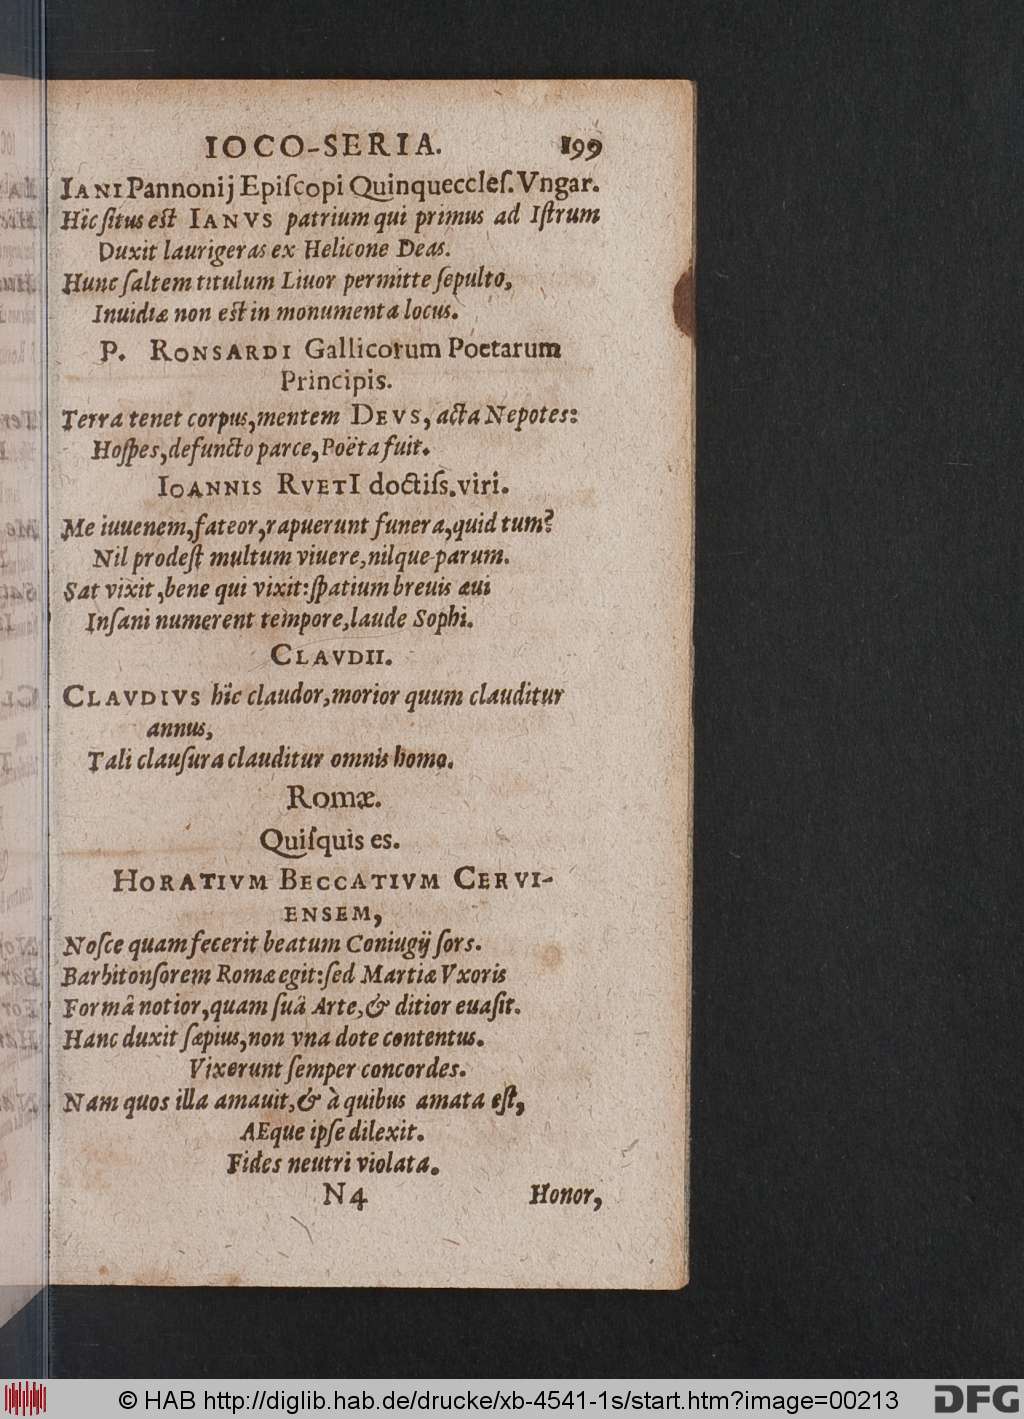 IOCO-SERIA. 199
IANI Pannonij Epiſcopi Quinqueccleſ. Vngar.
Hîc ſitus eſt IANVS patrium qui primus ad Iſtrum
Duxit laurigeras ex Helicone Deas.
Hunc ſaltem titulum Liuor permitte ſepulto,
Inuidiæ non eſt in monumenta locus.
P. RONSARDI Gallicorum Poetarum
Principis.
Terra tenet corpus, mentem DEVS, acta Nepotes:
Hoſpes, defuncto parce, Poëta fuit.
IOANNIS RVETI doctiſs. viri.
Me iuuenem, fateor, rapuerunt funera, quid tum?
Nil prodeſt multum viuere, nilque parum.
Sat vixit, bene qui vixit: ſpatium breuis æui
Inſani numerent tempore, laude Sophi.
CLAVDII.
CLAVDIVS hîc claudor, morior quum clauditur
annus,
Tali clauſura clauditur omnis homo.
Romæ.
Quiſquis es.
HORATIVM BECCATIVM CERVI-
ENSEM,
Noſce quam fecerit beatum Coniugij ſors.
Barbitonſorem Romæ egit: ſed Martiæ Vxoris
Formâ notior, quam ſuâ Arte, & ditior euaſit.
Hanc duxit ſæpius, non vna dote contentus.
Vixerunt ſemper concordes.
Nam quos illa amauit, & à quibus amata eſt,
AEque ipſe dilexit.
Fides neutri violata.
N 4 Honor,
© HAB http://diglib.hab.de/drucke/xb-4541-1s/start.htm?image=00213
DFG